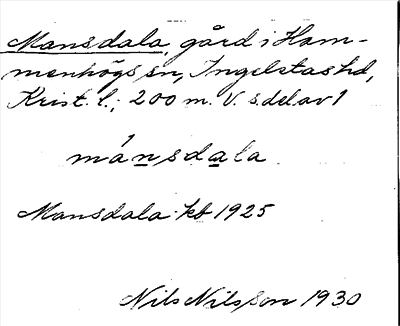 Mansdala, gård i Ham-
menhögs sn, Ingelstas hd,
Krist. l.; 200 m. V. s. del av 1
mánsdala
Mansdala kb 1925
Nils Nilsson 1930